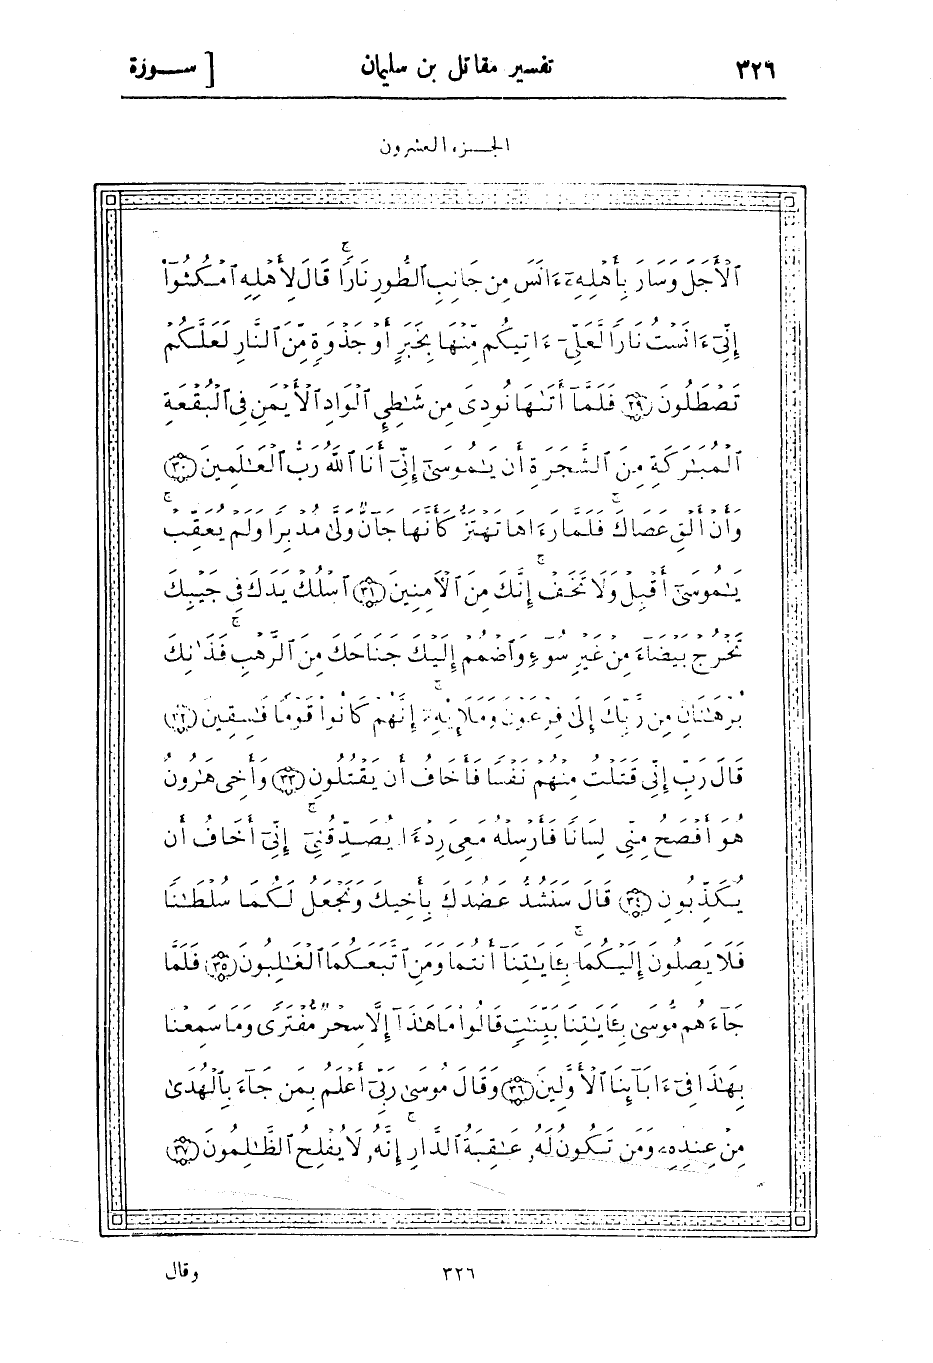 ٣٢٦ تفسير مقاتل بن سليمان [ ســورة
الجــزء العشرون
ٱلْأَجَلَ وَسَارَ بِأَهْلِهِۦٓ ءَانَسَ مِن جَانِبِ ٱلطُّورِ نَارًاۚ قَالَ لِأَهْلِهِ ٱمْكُثُوٓا۟
إِنِّىٓ ءَانَسْتُ نَارًا لَّعَلِّىٓ ءَاتِيكُم مِّنْهَا بِخَبَرٍ أَوْ جَذْوَةٍ مِّنَ ٱلنَّارِ لَعَلَّكُمْ
تَصْطَلُونَ ۝٢٩ فَلَمَّآ أَتَىٰهَا نُودِىَ مِن شَٰطِئِ ٱلْوَادِ ٱلْأَيْمَنِ فِى ٱلْبُقْعَةِ
ٱلْمُبَٰرَكَةِ مِنَ ٱلشَّجَرَةِ أَن يَٰمُوسَىٰٓ إِنِّىٓ أَنَا ٱللَّهُ رَبُّ ٱلْعَٰلَمِينَ ۝٣٠
وَأَنْ أَلْقِ عَصَاكَۚ فَلَمَّا رَءَاهَا تَهْتَزُّ كَأَنَّهَا جَآنٌّ وَلَّىٰ مُدْبِرًا وَلَمْ يُعَقِّبْۚ
يَٰمُوسَىٰٓ أَقْبِلْ وَلَا تَخَفْۚ إِنَّكَ مِنَ ٱلْأَمِنِينَ ۝٣١ ٱسْلُكْ يَدَكَ فِى جَيْبِكَ
تَخْرُجْ بَيْضَآءَ مِنْ غَيْرِ سُوٓءٍ وَٱضْمُمْ إِلَيْكَ جَنَاحَكَ مِنَ ٱلرَّهْبِۚ فَذَٰنِكَ
بُرْهَٰنَانِ مِن رَّبِّكَ إِلَىٰ فِرْعَوْنَ وَمَلَإِي۟هِۦٓۚ إِنَّهُمْ كَانُوا۟ قَوْمًا فَٰسِقِينَ ۝٣٢
قَالَ رَبِّ إِنِّى قَتَلْتُ مِنْهُمْ نَفْسًا فَأَخَافُ أَن يَقْتُلُونِ ۝٣٣ وَأَخِى هَٰرُونُ
هُوَ أَفْصَحُ مِنِّى لِسَانًا فَأَرْسِلْهُ مَعِىَ رِدْءًا يُصَدِّقُنِىٓۚ إِنِّىٓ أَخَافُ أَن
يُكَذِّبُونِ ۝٣٤ قَالَ سَنَشُدُّ عَضُدَكَ بِأَخِيكَ وَنَجْعَلُ لَكُمَا سُلْطَٰنًا
فَلَا يَصِلُونَ إِلَيْكُمَاۚ بِـَٔايَٰتِنَآ أَنتُمَا وَمَنِ ٱتَّبَعَكُمَا ٱلْغَٰلِبُونَ ۝٣٥ فَلَمَّا
جَآءَهُم مُّوسَىٰ بِـَٔايَٰتِنَا بَيِّنَٰتٍ قَالُوا۟ مَا هَٰذَآ إِلَّا سِحْرٌ مُّفْتَرًى وَمَا سَمِعْنَا
بِهَٰذَا فِىٓ ءَابَآئِنَا ٱلْأَوَّلِينَ ۝٣٦ وَقَالَ مُوسَىٰ رَبِّىٓ أَعْلَمُ بِمَن جَآءَ بِٱلْهُدَىٰ
مِنْ عِندِهِۦ وَمَن تَكُونُ لَهُۥ عَٰقِبَةُ ٱلدَّارِۚ إِنَّهُۥ لَا يُفْلِحُ ٱلظَّٰلِمُونَ ۝٣٧
٣٢٦ وقال